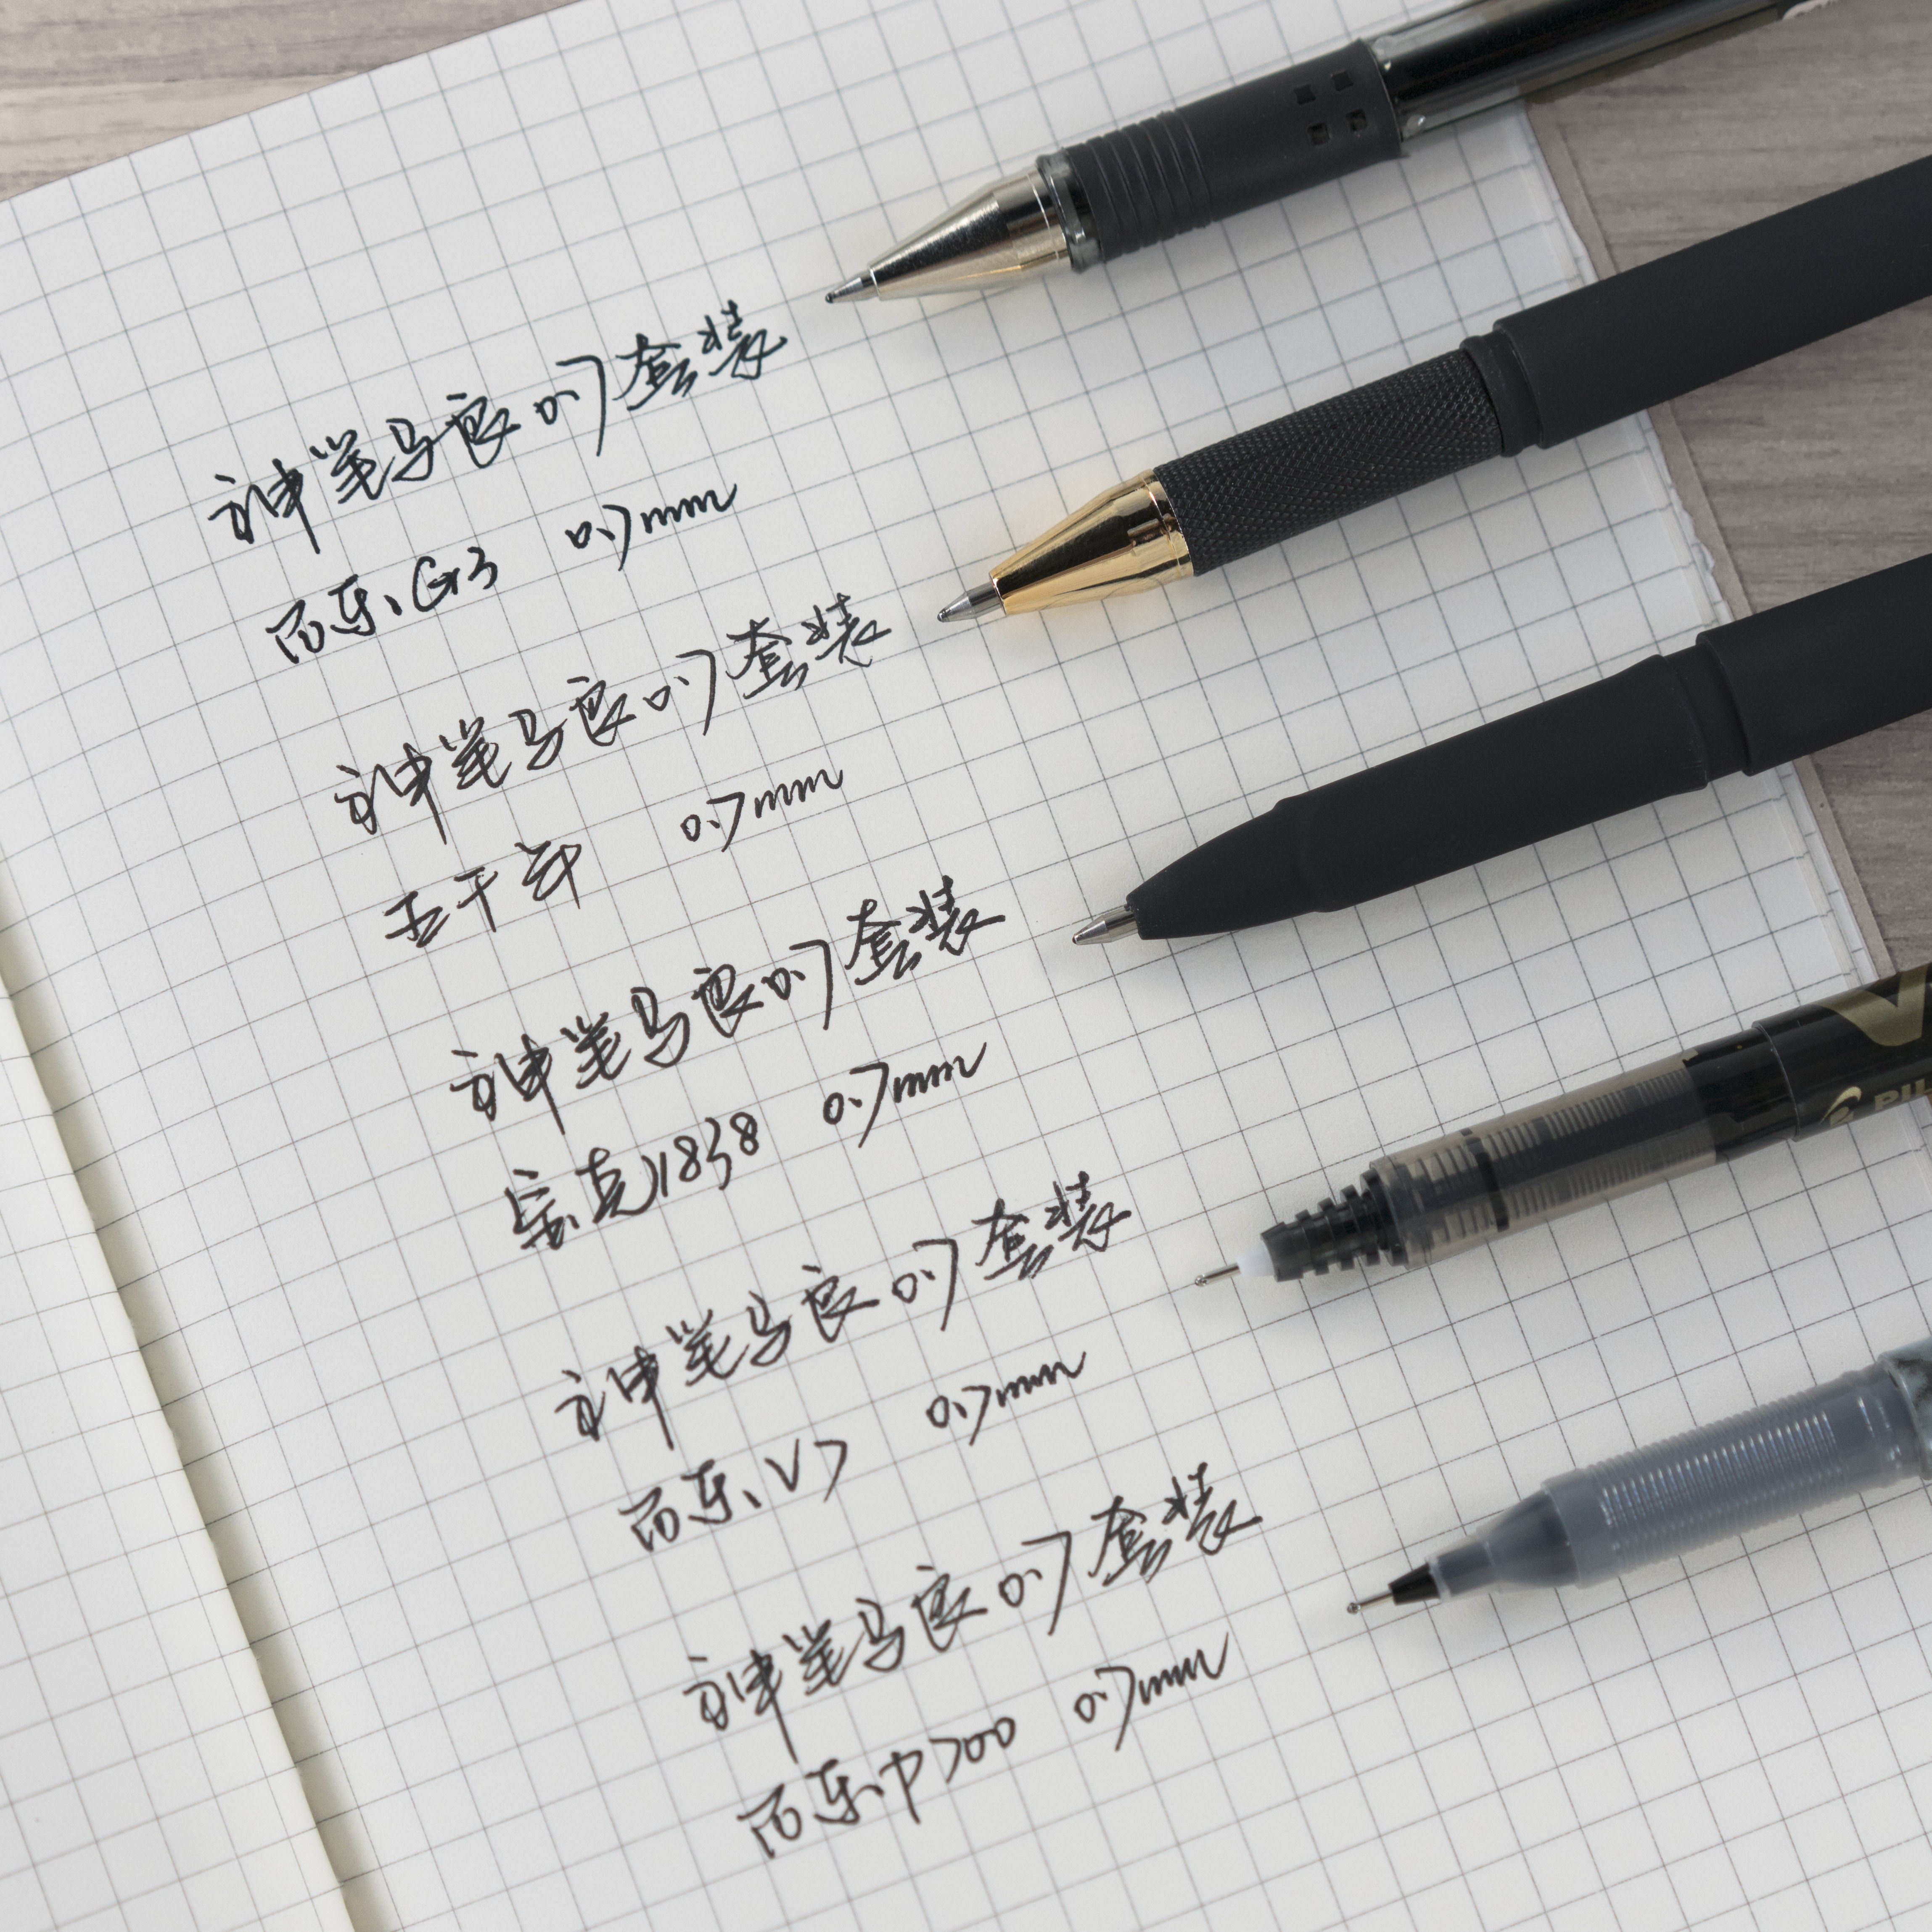 神笔马良的套装
百乐G3 0.7mm
神笔马良的套装
五千年 0.7mm
神笔马良的套装
宝克1838 0.7mm
神笔马良的套装
百乐V7 0.7mm
神笔马良的套装
百乐P700 0.7mm